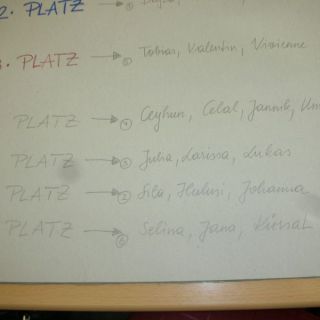 2. PLATZ →
3. PLATZ → Tobias, Valentin, Vivienne
PLATZ → ④ Ceyhun, Celal, Jannik,
PLATZ → ③ Julia, Larissa, Lukas
PLATZ → ② Sila, Hulusi, Johanna
PLATZ → ⑥ Selina, Jana,